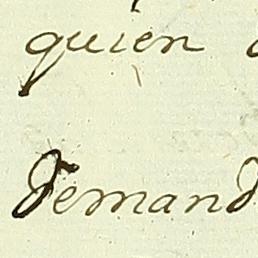 quien
demand